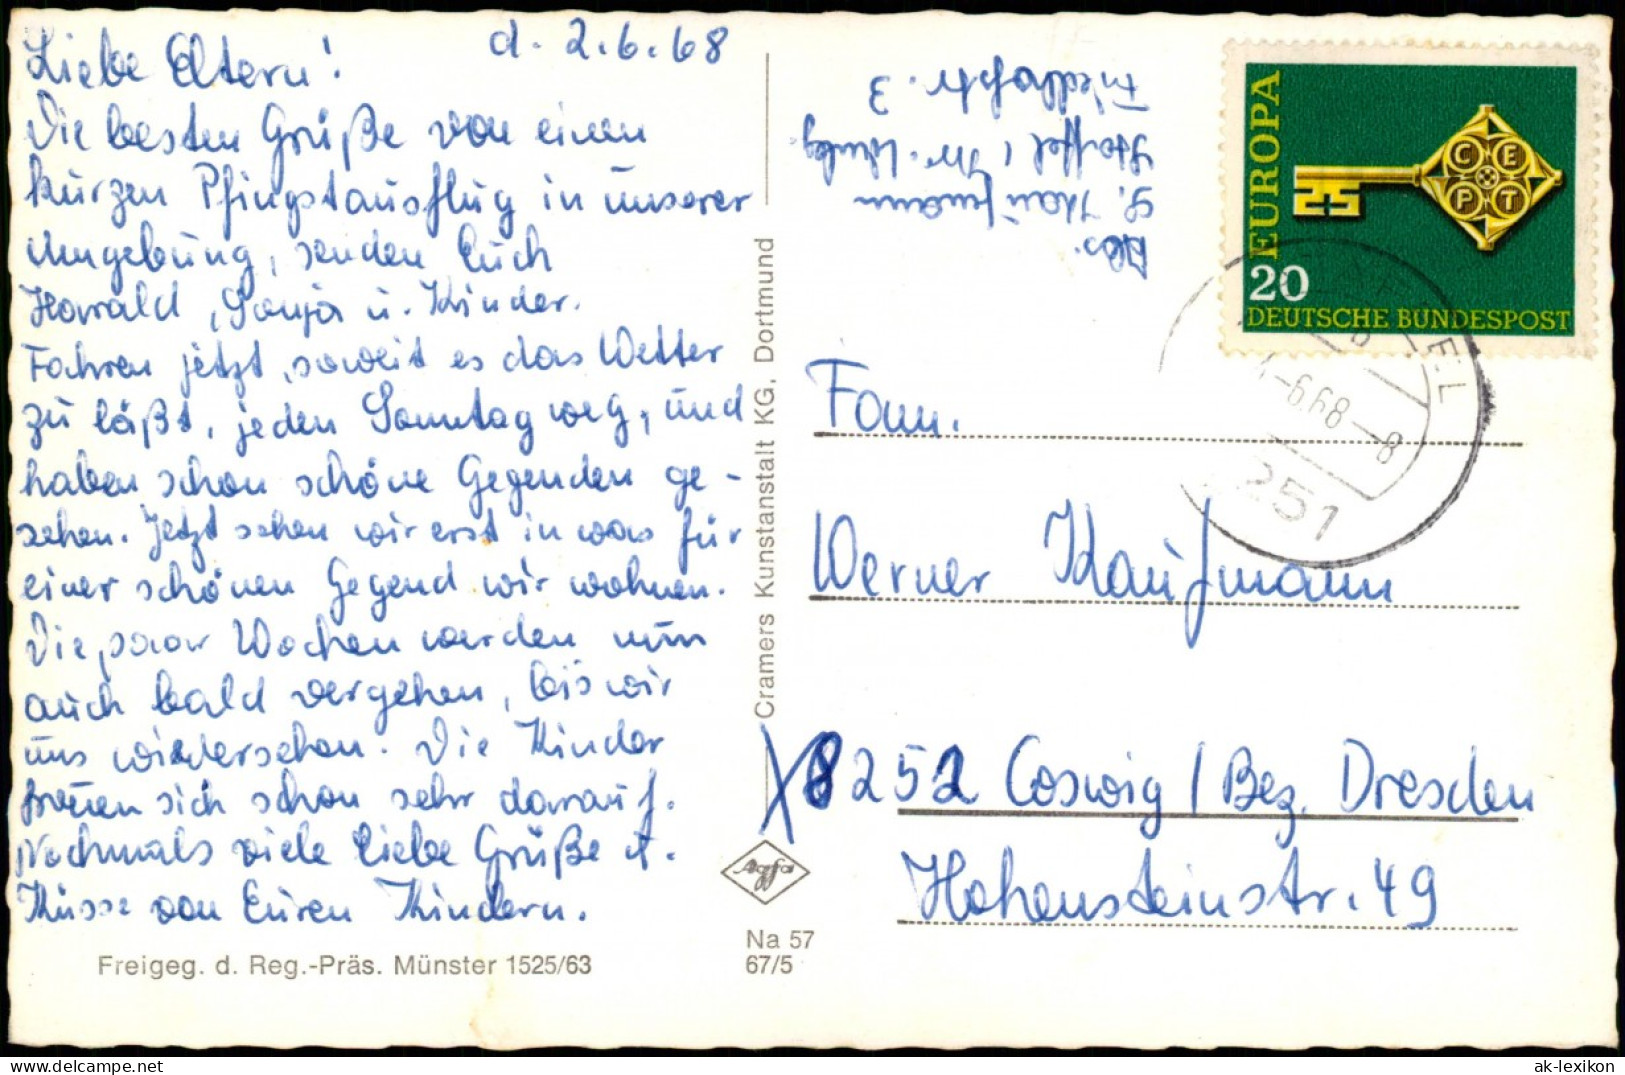 d. 2.6.68
Liebe Eltern!
Die besten Grüße von einen
kurzen Pfingstausflug in unserer
Umgebung, senden Euch
Harald, Sonja u. Kinder.
Fahren jetzt, soweit es das Wetter
zu läßt, jeden Sonntag weg, und
haben schon schöne Gegenden ge-
sehen. Jetzt sehen wir erst in was für
einer schönen Gegend wir wohnen.
Die paar Wochen werden nun
auch bald vergehen, bis wir
uns wiedersehen. Die Kinder
freuen sich schon sehr darauf.
Nochmals viele liebe Grüße u.
Küsse von Euren Kindern.
Freigeg. d. Reg.-Präs. Münster 1525/63
Cramers Kunstanstalt KG, Dortmund
Agfa
Na 57
67/5
Abs.
S. Kaufmann
Staffel
Friedhofstr. 3
EUROPA
CEPT
20
DEUTSCHE BUNDESPOST
-9.68-8
6251
Fam.
Werner Kaufmann
X8252 Coswig / Bez. Dresden
Hohensteinstr. 49
Freigeg.de
ak-lexikon